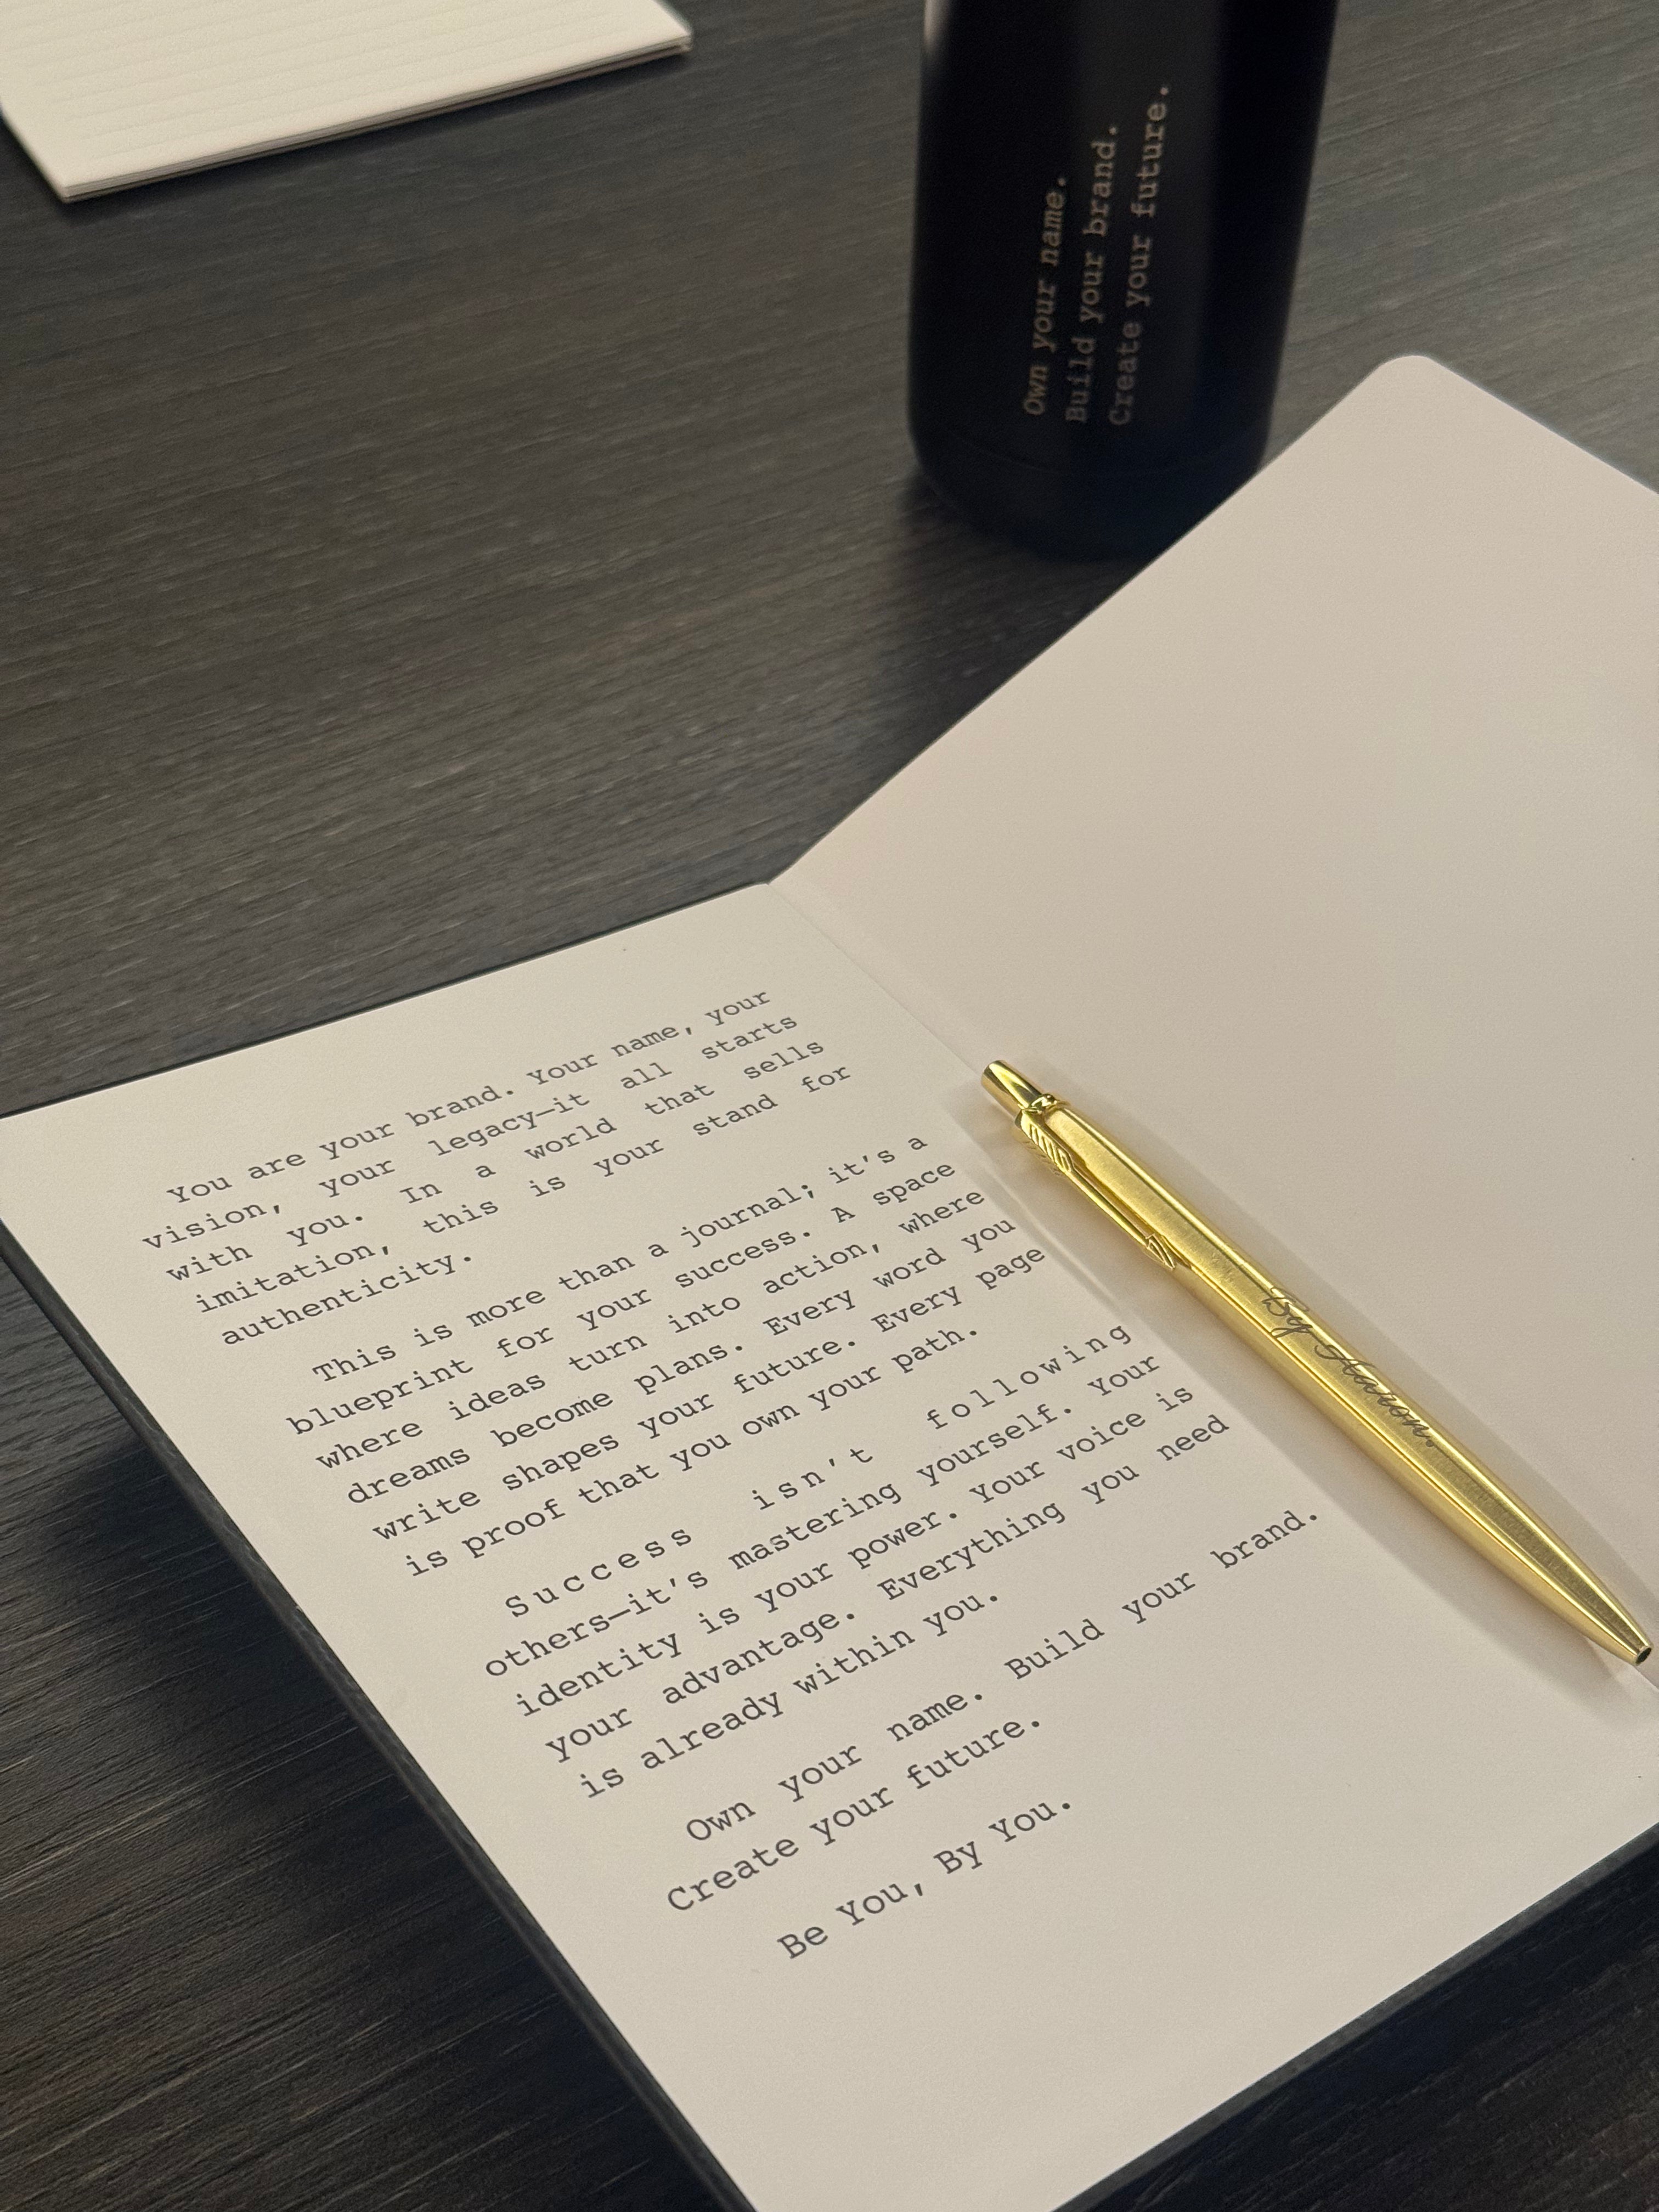 Own your name.
Build your brand.
Create your future.
You are your brand. Your name, your
vision, your legacy—it all starts
with you. In a world that sells
imitation, this is your stand for
authenticity.
This is more than a journal; it's a
blueprint for your success. A space
where ideas turn into action, where
dreams become plans. Every word you
write shapes your future. Every page
is proof that you own your path.
Success isn't following
others—it's mastering yourself. Your
identity is your power. Your voice is
your advantage. Everything you need
is already within you.
Own your name. Build your brand.
Create your future.
Be You, By You.
By Aaron.